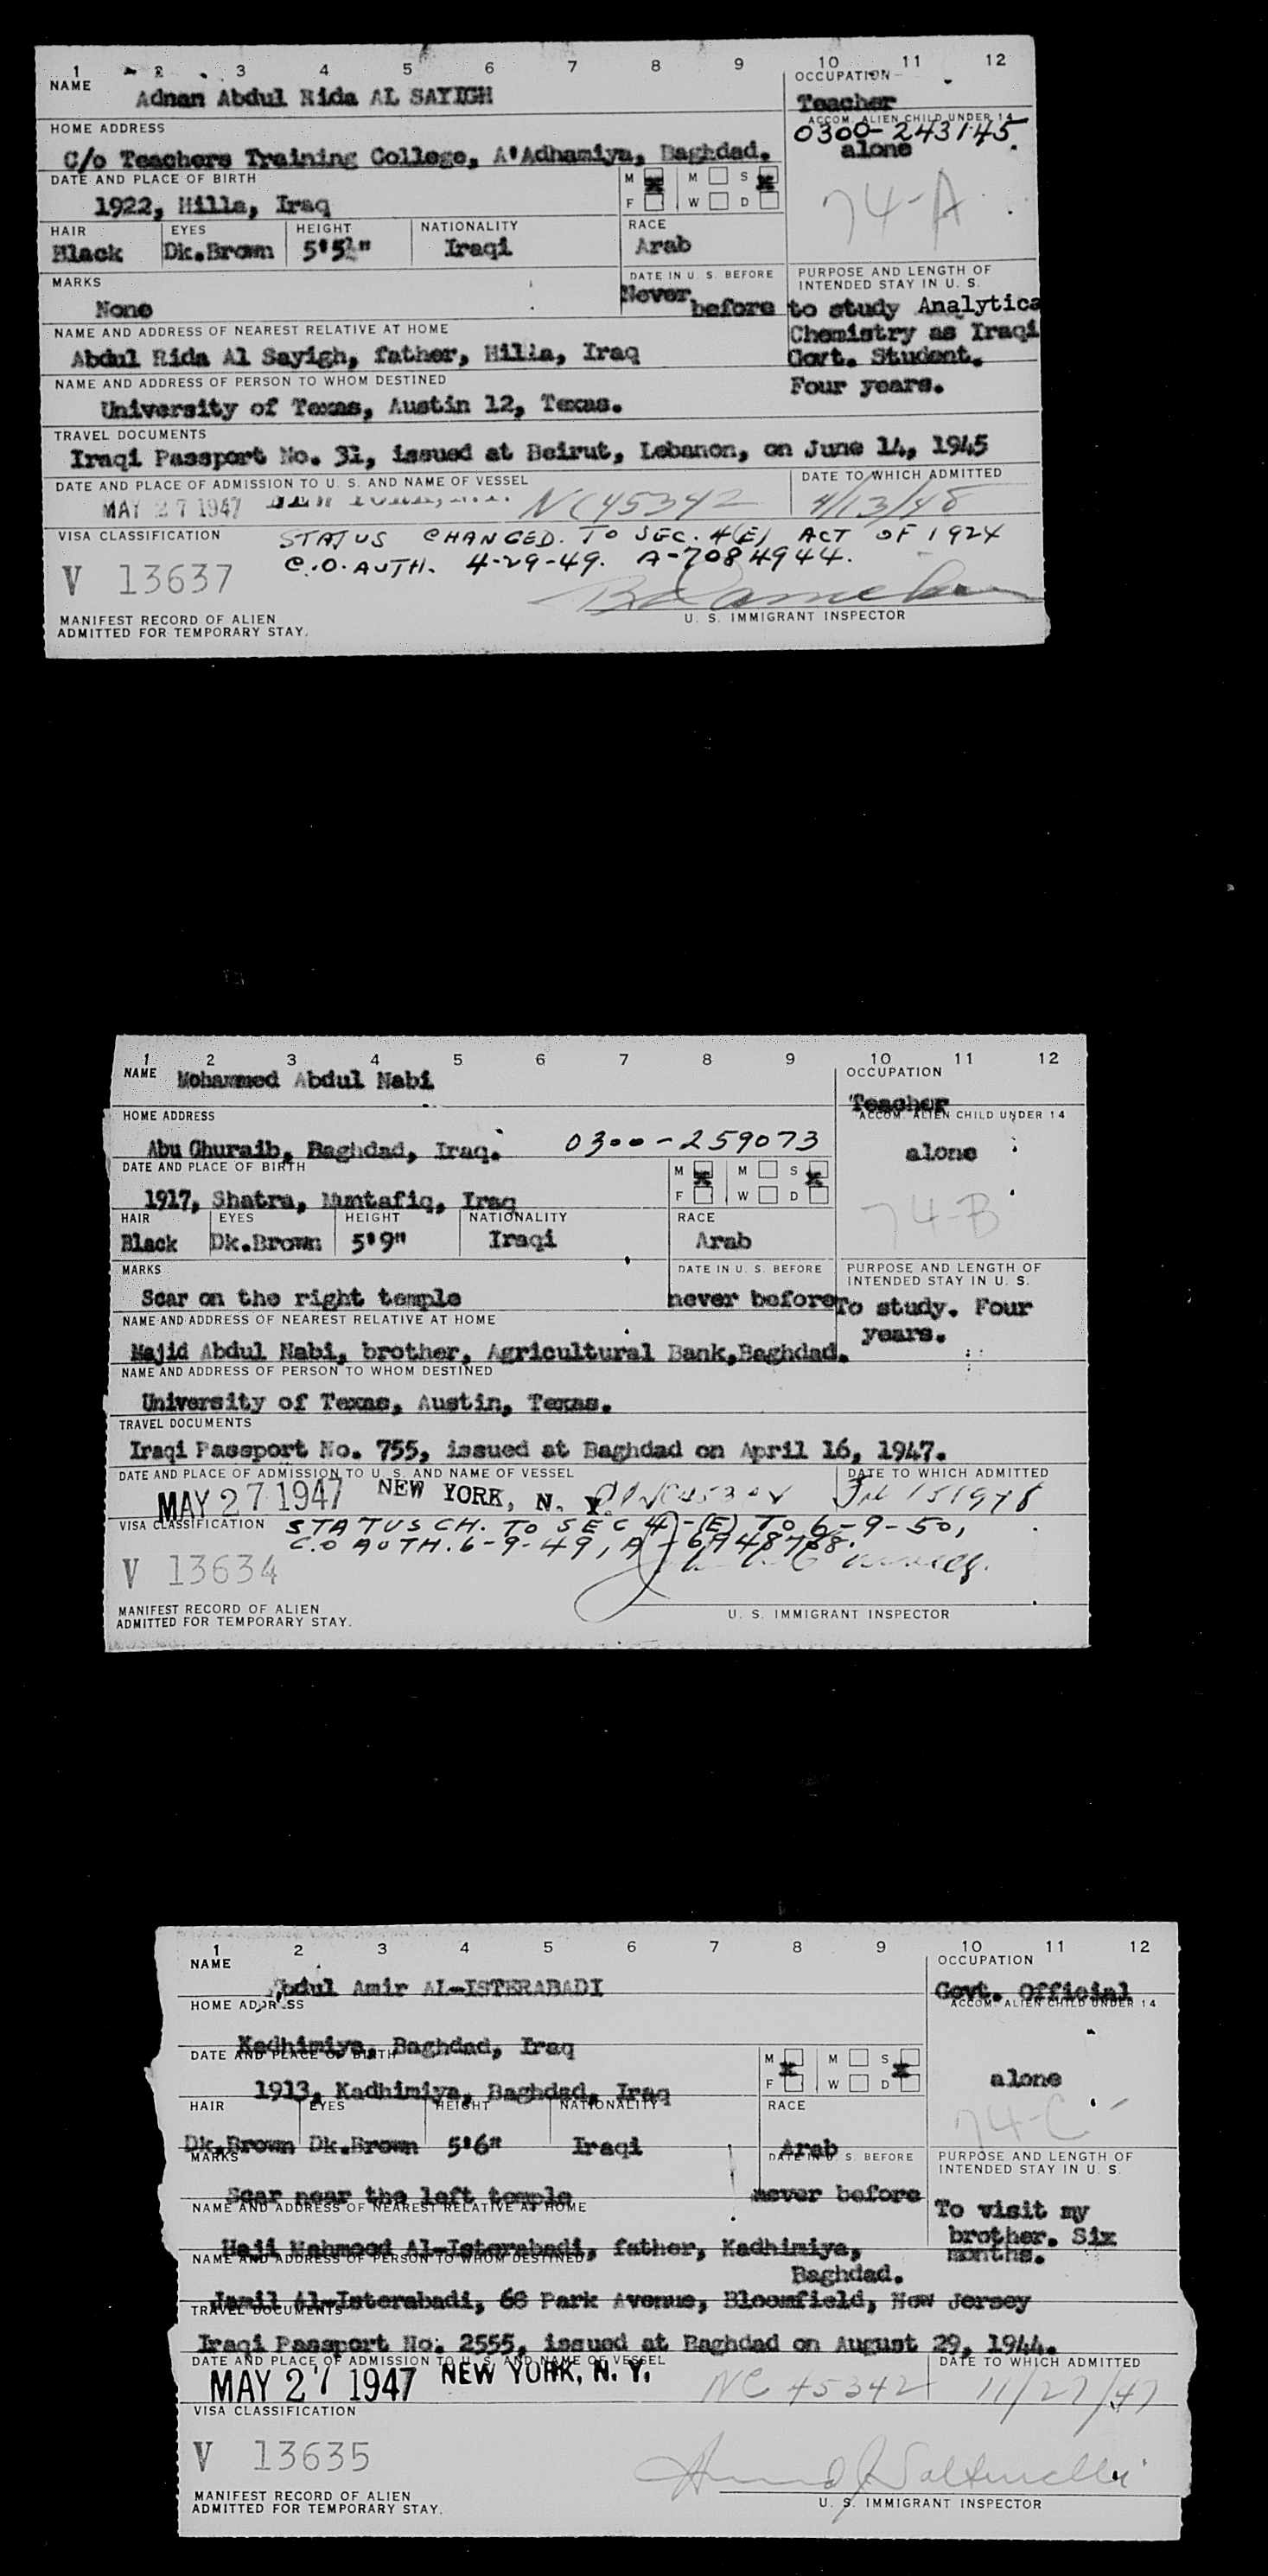 1 2 3 4 5 6 7 8 9 10 11 12
NAME
Adnan Abdul Rida AL SAYIGH
OCCUPATION
Teacher
HOME ADDRESS
C/o Teachers Training College, A'Adhamiya, Baghdad.
ACCOM. ALIEN CHILD UNDER 14
0300-243145
alone
DATE AND PLACE OF BIRTH
1922, Hilla, Iraq
M M S
F W D
74-A
HAIR EYES HEIGHT NATIONALITY RACE
Black Dk.Brown 5'5½" Iraqi Arab
MARKS
None
DATE IN U. S. BEFORE
Never before
PURPOSE AND LENGTH OF
INTENDED STAY IN U. S.
to study Analytica
Chemistry as Iraqi
Govt. Student.
Four years.
NAME AND ADDRESS OF NEAREST RELATIVE AT HOME
Abdul Rida Al Sayigh, father, Hilla, Iraq
NAME AND ADDRESS OF PERSON TO WHOM DESTINED
University of Texas, Austin 12, Texas.
TRAVEL DOCUMENTS
Iraqi Passport No. 31, issued at Beirut, Lebanon, on June 14, 1945
DATE AND PLACE OF ADMISSION TO U. S. AND NAME OF VESSEL DATE TO WHICH ADMITTED
MAY 27 1947 NEW YORK, N.Y. NC45342 4/13/48
VISA CLASSIFICATION
STATUS CHANGED. TO SEC. 4(E) ACT OF 1924
C.O. AUTH. 4-29-49. A-7084944.
V 13637
U. S. IMMIGRANT INSPECTOR
MANIFEST RECORD OF ALIEN
ADMITTED FOR TEMPORARY STAY.
1 2 3 4 5 6 7 8 9 10 11 12
NAME
Mohammed Abdul Nabi
OCCUPATION
Teacher
HOME ADDRESS
Abu Ghuraib, Baghdad, Iraq. 0300-259073
ACCOM. ALIEN CHILD UNDER 14
alone
DATE AND PLACE OF BIRTH
1917, Shatra, Muntafiq, Iraq
M M S
F W D
74-B
HAIR EYES HEIGHT NATIONALITY RACE
Black Dk.Brown 5'9" Iraqi Arab
MARKS
Scar on the right temple
DATE IN U. S. BEFORE
never before
PURPOSE AND LENGTH OF
INTENDED STAY IN U. S.
To study. Four
years.
NAME AND ADDRESS OF NEAREST RELATIVE AT HOME
Majid Abdul Nabi, brother, Agricultural Bank,Baghdad.
NAME AND ADDRESS OF PERSON TO WHOM DESTINED
University of Texas, Austin, Texas.
TRAVEL DOCUMENTS
Iraqi Passport No. 755, issued at Baghdad on April 16, 1947.
DATE AND PLACE OF ADMISSION TO U. S. AND NAME OF VESSEL DATE TO WHICH ADMITTED
MAY 27 1947 NEW YORK, N. Y.
VISA CLASSIFICATION
STATUS CH. TO SEC 4-(E) TO 6-9-50,
C.O AUTH. 6-9-49, A-6948768.
V 13634
MANIFEST RECORD OF ALIEN
ADMITTED FOR TEMPORARY STAY.
U. S. IMMIGRANT INSPECTOR
1 2 3 4 5 6 7 8 9 10 11 12
NAME
Abdul Amir AL-ISTERABADI
OCCUPATION
Govt. Official
HOME ADDRESS
Kadhimiya, Baghdad, Iraq
ACCOM. ALIEN CHILD UNDER 14
alone
DATE AND PLACE OF BIRTH
1913, Kadhimiya, Baghdad, Iraq
M M S
F W D
74-C
HAIR EYES HEIGHT NATIONALITY RACE
Dk.Brown Dk.Brown 5'6" Iraqi Arab
MARKS
Scar near the left temple
DATE IN U. S. BEFORE
never before
PURPOSE AND LENGTH OF
INTENDED STAY IN U. S.
To visit my
brother. Six
months.
NAME AND ADDRESS OF NEAREST RELATIVE AT HOME
Haji Mahmood Al-Isterabadi, father, Kadhimiya,
Baghdad.
NAME AND ADDRESS OF PERSON TO WHOM DESTINED
Jamil Al-Isterabadi, 68 Park Avenue, Bloomfield, New Jersey
TRAVEL DOCUMENTS
Iraqi Passport No. 2555, issued at Baghdad on August 29, 1944.
DATE AND PLACE OF ADMISSION TO U. S. AND NAME OF VESSEL DATE TO WHICH ADMITTED
MAY 27 1947 NEW YORK, N. Y. NC 45342 11/27/47
VISA CLASSIFICATION
V 13635
MANIFEST RECORD OF ALIEN
ADMITTED FOR TEMPORARY STAY.
U. S. IMMIGRANT INSPECTOR